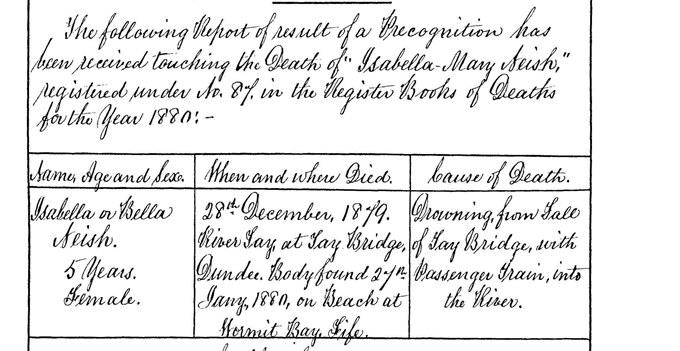 The following Report of result of a Precognition has
been received touching the Death of "Isabella-Mary Neish,"
registered under No. 87. in the Register Books of Deaths
for the Year 1880:-
Name, Age and Sex.
When and where Died.
Cause of Death.
Isabella or Bella
Neish.
5 Years.
Female.
28th December, 1879.
River Tay, at Tay Bridge,
Dundee. Body found 27th
Jany, 1880, on Beach at
Wormit Bay, Fife.
Drowning, from Fall
of Tay Bridge, with
Passenger Train, into
the River.